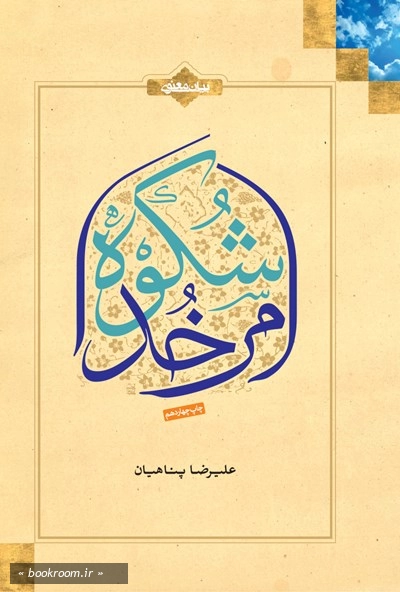 بیان معنوی
شکوه
امر خدا
چاپ چهاردهم
علیرضا پناهیان
« bookroom.ir »